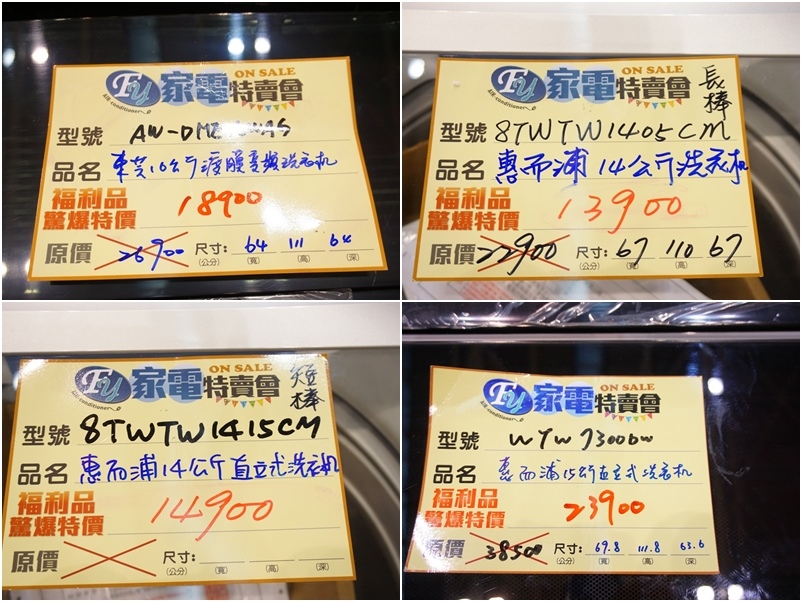 FY 家電特賣會 ON SALE
Air conditioner
型號
品名 東芝16公斤渡膜變頻洗衣机
福利品 驚爆特價 18900
原價 26900 尺寸: (公分) 64 (寬) 111 (高) 64 (深)
FY 家電特賣會 ON SALE 長棒
Air conditioner
型號 8TWTW1405CM
品名 惠而浦 14公斤洗衣机
福利品 驚爆特價 13900
原價 22900 尺寸: (公分) 67 (寬) 110 (高) 67 (深)
FY 家電特賣會 ON SALE 短棒
Air conditioner
型號 8TWTW1415CM
品名 惠而浦14公斤直立式洗衣机
福利品 驚爆特價 14900
原價 尺寸: (公分) (寬) (高) (深)
FY 家電特賣會 ON SALE
Air conditioner
型號 WTW7300DW
品名 惠而浦15公斤直立式洗衣机
福利品 驚爆特價 23900
原價 38500 尺寸: (公分) 69.8 (寬) 111.8 (高) 63.6 (深)